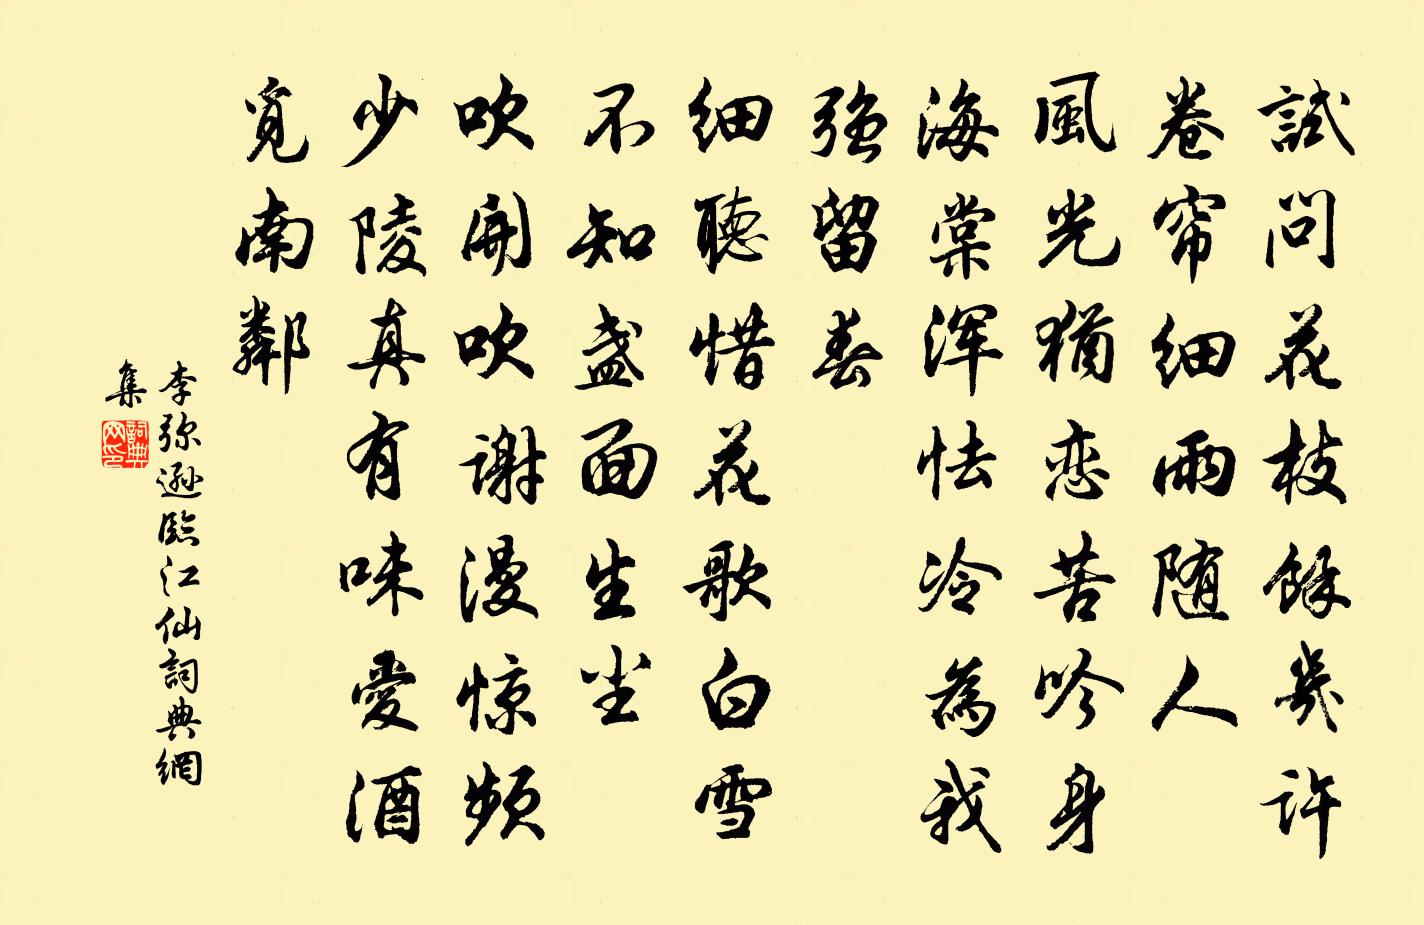 試問花枝餘幾許
卷帘細雨随人
風光猶恋苦吟身
海棠浑怯冷為我
强留春
細聽惜花歌白雪
不知盏面生尘
吹開吹谢漫惊频
少陵真有味愛酒
覓南鄰
李弥遜臨江仙詞典網
集
詞典
网印